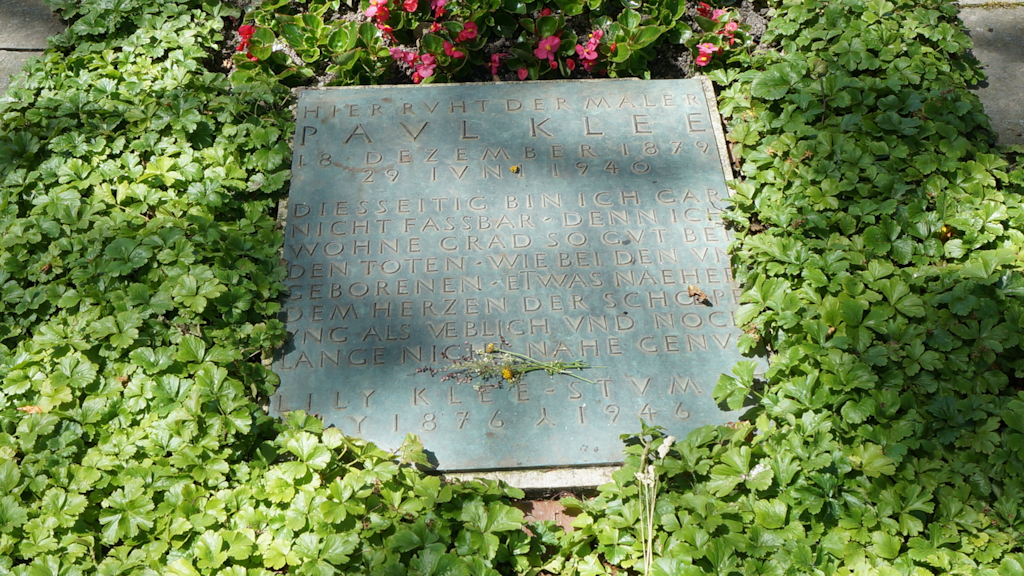 HIER RVHT DER MALER
PAVL KLEE
18 DEZEMBER 1879
29 IVNI 1940
DIESSEITIG BIN ICH GAR
NICHT FASSBAR - DENN ICH
WOHNE GRAD SO GVT BEI
DEN TOTEN - WIE BEI DEN VN
GEBORENEN - ETWAS NAEHER
DEM HERZEN DER SCHÖPF
VNG ALS VEBLICH VND NOCH
LANGE NICHT NAHE GENVG
LILY KLEE - STVMPF
Y 1876 ⅄ 1946